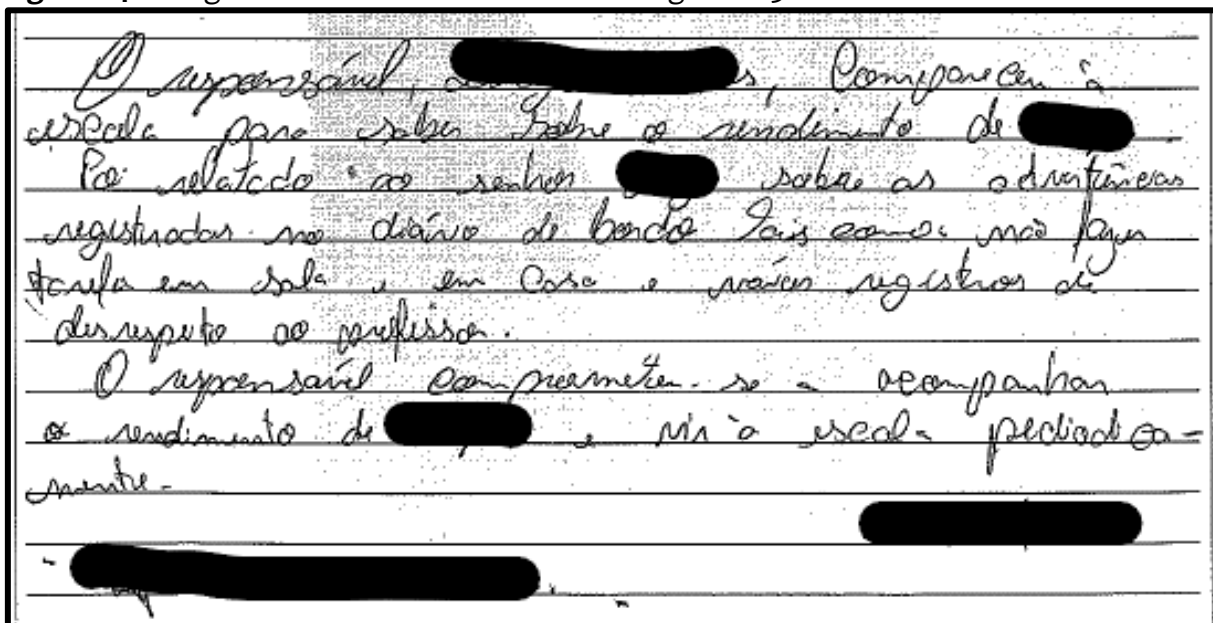 O responsável, , compareceu à
escola para saber sobre o rendimento de .
Foi relatado ao senhor sobre as advertências
registradas no diário de bordo tais como: não fazer
tarefa em sala e em casa e vários registros de
desrespeito ao professor.
O responsável comprometeu-se a acompanhar
o rendimento de e vir à escola
mente.